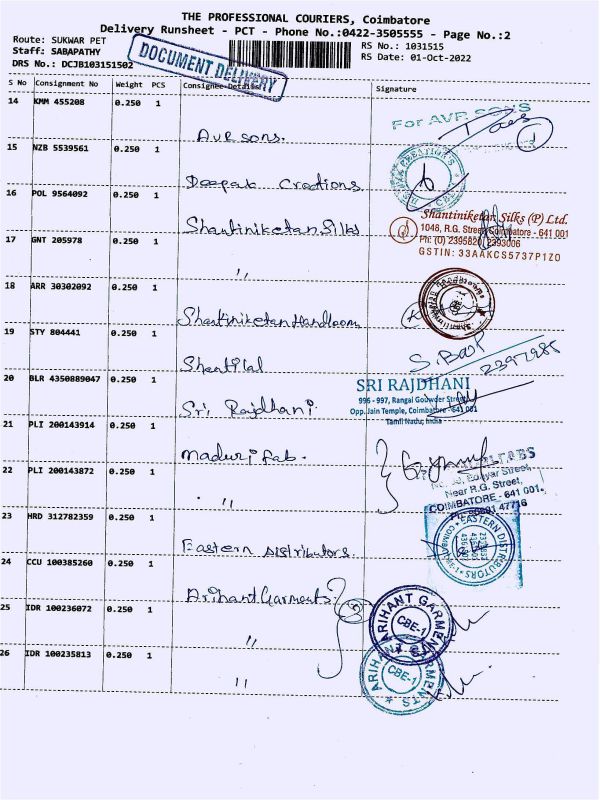 THE PROFESSIONAL COURIERS, Coimbatore
Delivery Runsheet - PCT - Phone No.:0422-3505555 - Page No.:2
Route: SUKWAR PET
RS No.: 1031515
Staff: SABAPATHY
RS Date: 01-Oct-2022
DRS No.: DCJB103151502
DOCUMENT DELIVERY
S No Consignment No Weight PCS Consignee Details Signature
14 KMM 455208 0.250 1
AVR sons.
For AVR SONS
15 NZB 5539561 0.250 1
Deepak Creations
16 POL 9564092 1
Shantiniketan Silks
Shantiniketan Silks (P) Ltd.
1048, R.G. Street, Coimbatore - 641 001
Ph: (O) 2395820, 2393006
GSTIN: 33AAKCS5737P1Z0
17 GNT 205978 0.250 1
"
18 ARR 30302092 0.250 1
Shantiniketan Handloom
19 STY 804441 0.250 1
Shantilal
2397985
20 BLR 4350889047 0.250 1
Sri Rajdhani.
SRI RAJDHANI
996 - 997, Rangai Gowder Street,
Opp. Jain Temple, Coimbatore - 641 001
Tamil Nadu, India
21 PLI 200143914 0.250 1
Maduri fab.
Near R.G. Street,
COIMBATORE - 641 001.
22 PLI 200143872 0.250 1
"
23 HRD 312782359 0.250 1
Eastern Distributors.
EASTERN DISTRIBUTORS
24 CCU 100385260 0.250 1
Arihant Garments
25 IDR 100236072 0.250 1
"
ARIHANT GARMENTS
CBE-1
26 IDR 100235813 0.250 1
"
ARIHANT GARMENTS
CBE-1